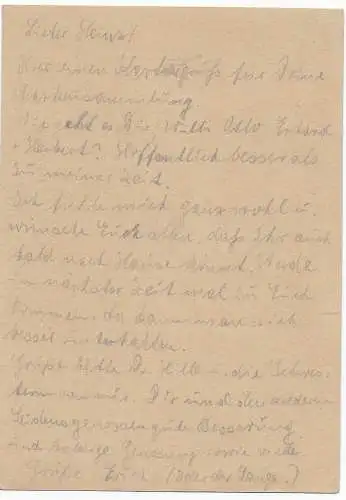 Lieber Heinz!
Hier einen für Deine
Markensammlung
Wie geht es Dir, Willi, Otto, Erhard
u. Herbert? Hoffentlich besser als
zu meiner Zeit.
Ich fühle mich ganz wohl u.
wünsche Euch allen, daß Ihr auch
bald nach Hause kommt. Werde
in nächster Zeit mal zu Euch
kommen, da kann man sich
besser unterhalten.
Grüße bitte Dr. Hill u. die Schwes-
tern von mir. Dir und den anderen
Leidensgenossen gute Besserung
und baldige Genesung sowie viele
Grüße Erich (oder der Lange.)